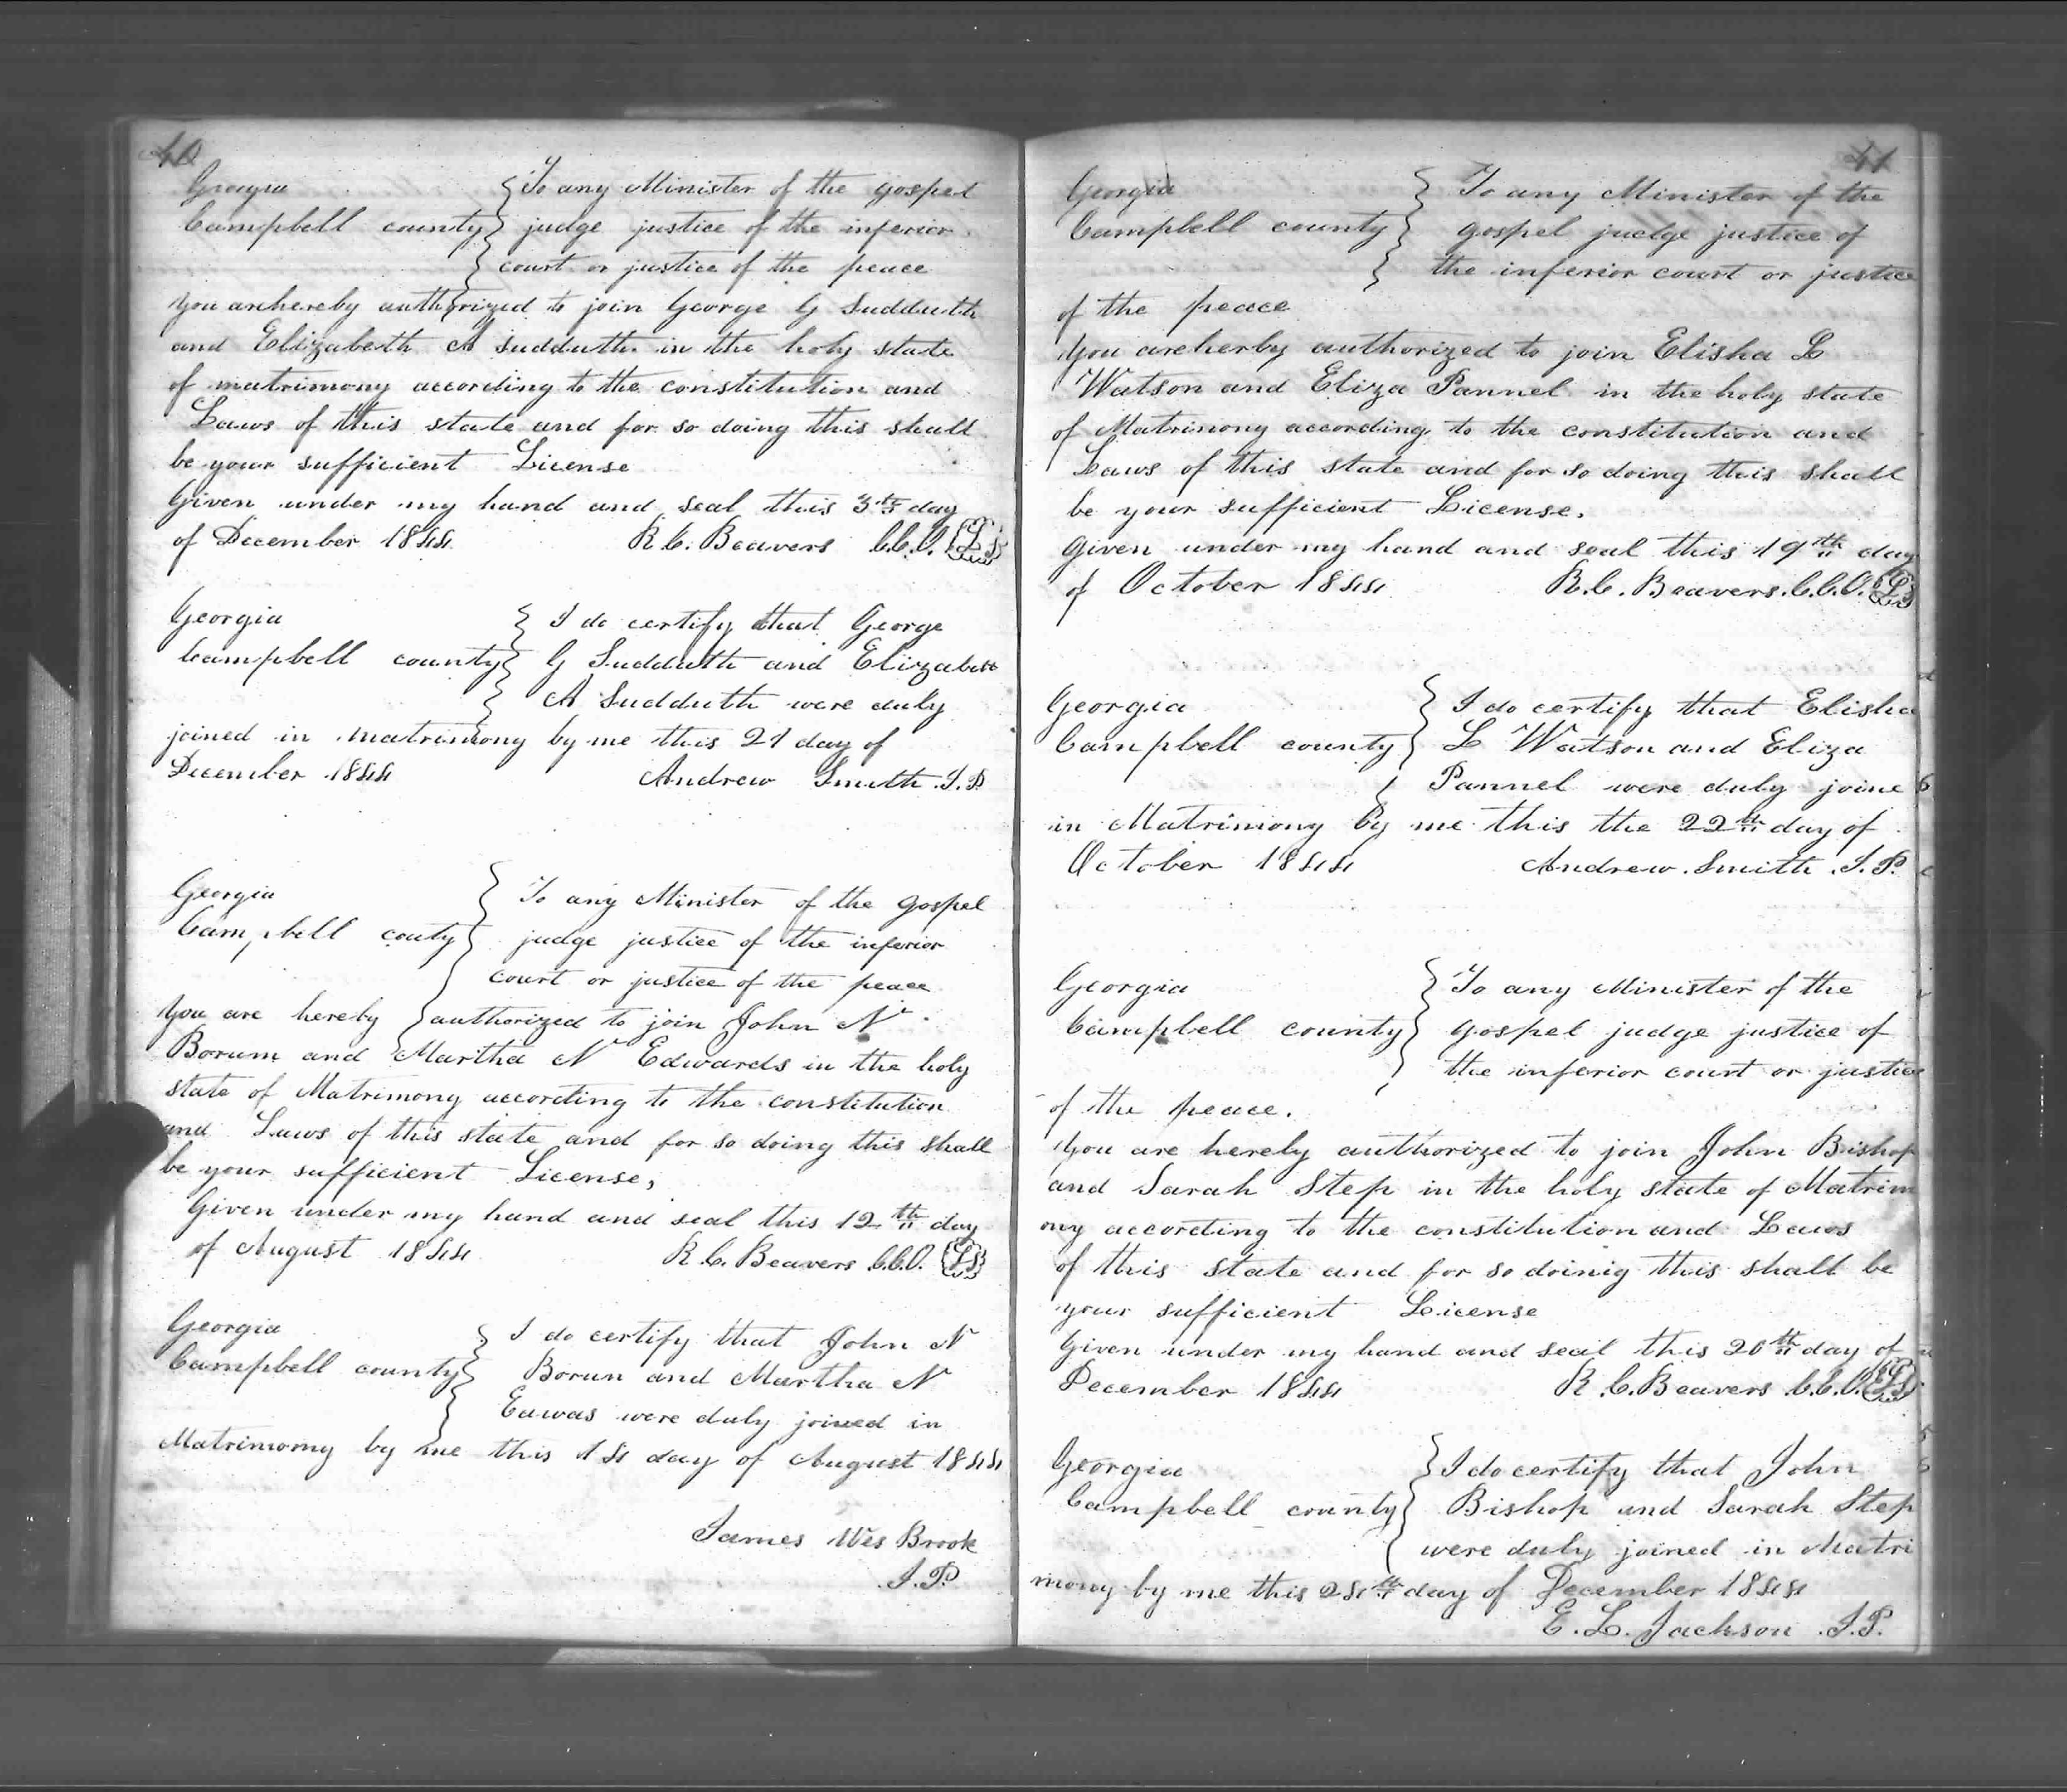 40
Georgia
Campbell county
To any Minister of the gospel
judge justice of the inferior
court or justice of the peace
you arehereby authorized to join George G Sudduth
and Elizabeth A Sudduth in the holy state
of matrimony according to the constitution and
Laws of this state and for so doing this shall
be your sufficient License
Given under my hand and seal this 3th day
of December 1844 R. C. Beavers C.C.O. LS
Georgia
Campbell county
I do certify that George
G Sudduth and Elizabeth
A Sudduth were duly
joined in matrimony by me this 21 day of
December 1844 Andrew Smith J.P.
Georgia
Campbell couty
To any Minister of the gospel
judge justice of the inferior
court or justice of the peace
you are hereby authorized to join John N
Borum and Martha N Edwards in the holy
state of Matrimony according to the constitution
and Laws of this state and for so doing this shall
be your sufficient License,
Given under my hand and seal this 12th day
of August 1844 R. C. Beavers C.C.O. LS
Georgia
Campbell county
I do certify that John N
Borun and Martha N
Edwas were duly joined in
Matrimony by me this 14 day of August 1844
James Wes Brook
J.P.
41
Georgia
Campbell county
To any Minister of the
gospel judge justice of
the inferior court or justice
of the peace
you areherby authorized to join Elisha L
Watson and Eliza Pannel in the holy state
of Matrimony according to the constitution and
Laws of this state and for so doing this shall
be your sufficient License.
Given under my hand and seal this 19th day
of October 1844 R. C. Beavers. C.C.O. LS
Georgia
Campbell county
I do certify that Elisha
L Watson and Eliza
Pannel were duly joine
in Matrimony by me this the 22th day of
October 1844 Andrew Smith J.P.
Georgia
Campbell county
To any Minister of the
gospel judge justice of
the inferior court or justice
of the peace.
you are hereby authorized to join John Bishop
and Sarah Step in the holy state of Matrim
ony according to the constitution and Laws
of this state and for so doinig this shall be
your sufficient License
Given under my hand and seal this 20th day of
December 1844 R. C. Beavers C.C.O. LS
Georgia
Campbell county
I do certify that John
Bishop and Sarah Step
were duly joined in Matri
mony by me this 24th day of December 1844
E. L. Jackson J.P.